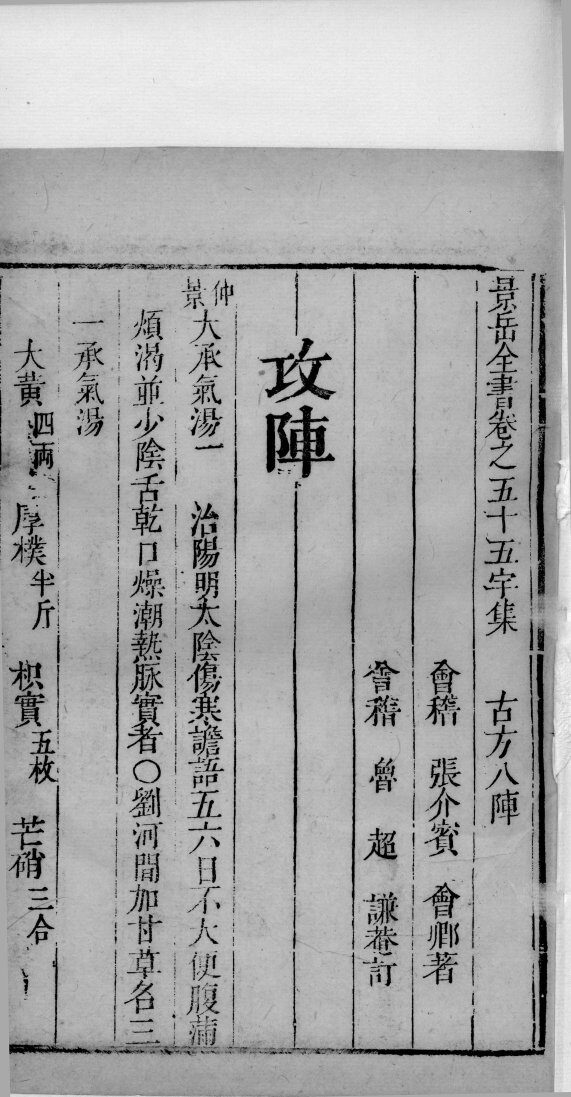 景岳全書卷之五十五宇集　古方八陣
會稽　張介賓　會卿著
會稽　魯　超　謙菴訂
攻陣
仲景大承氣湯一　治陽明太陰傷寒譫語五六日不大便腹滿
煩渴並少陰舌乾口燥潮熱脉實者○劉河間加甘草名三
一承氣湯
大黃四兩　厚樸半斤　枳實五枚　芒硝三合